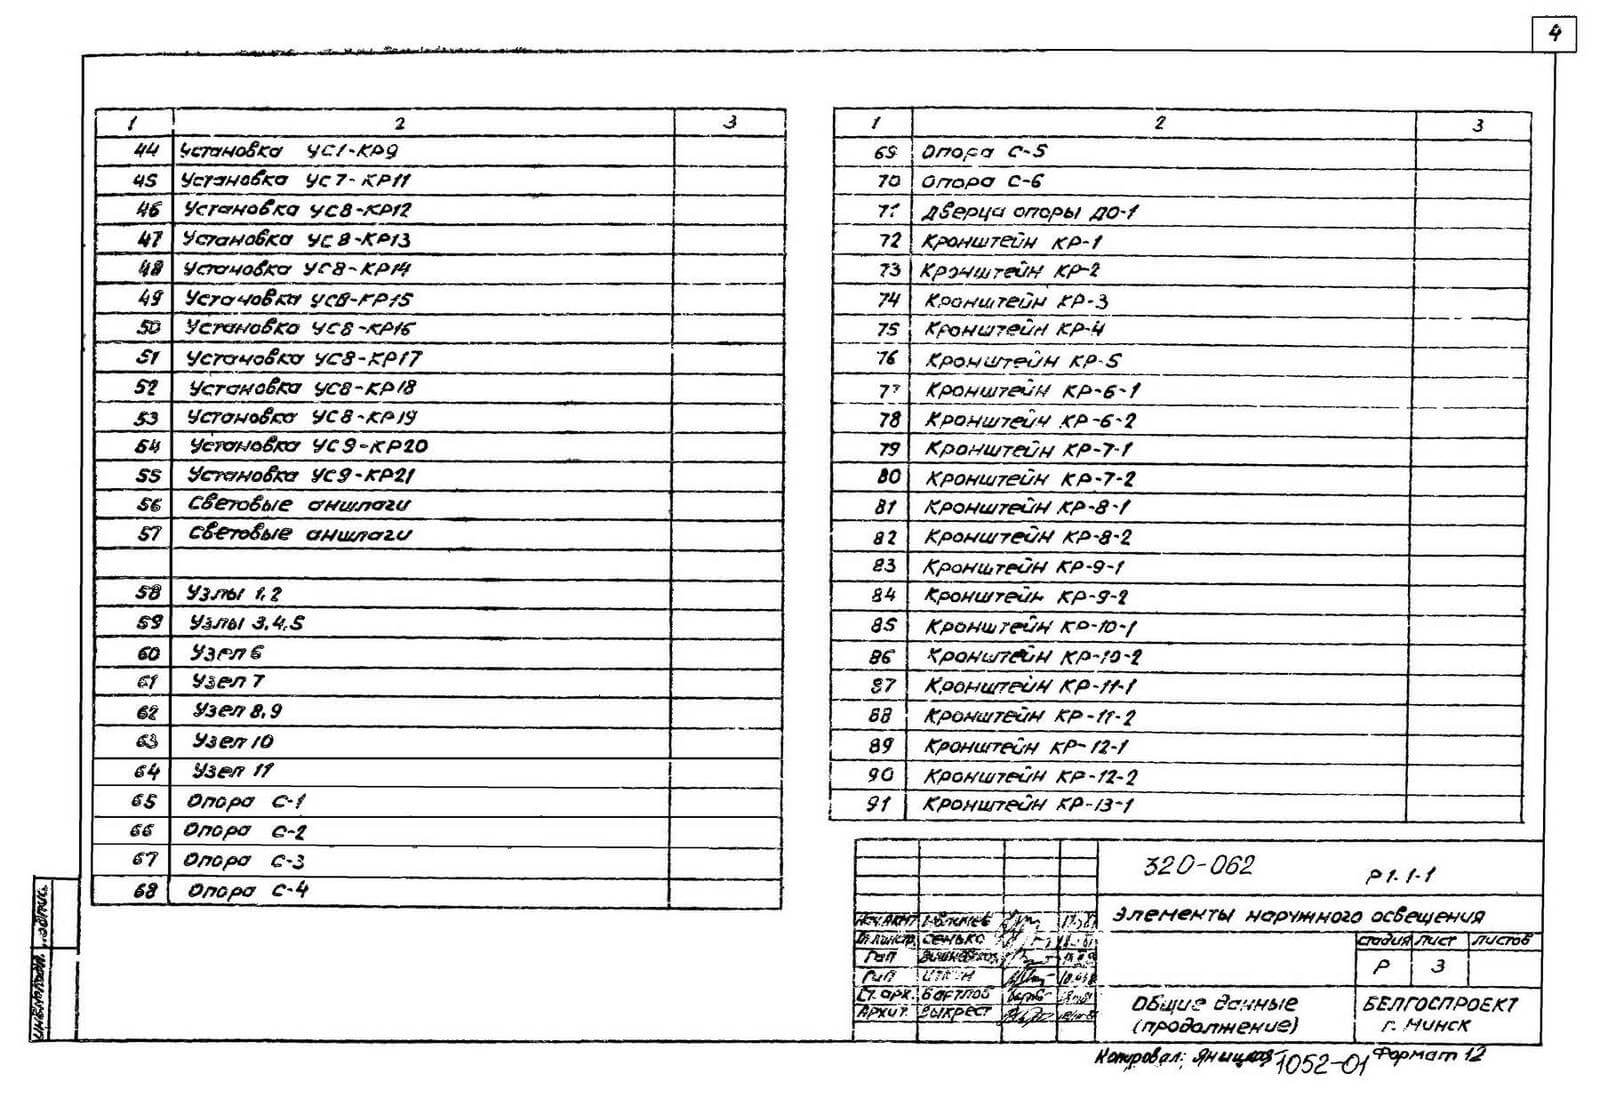 4
1 2 3
44 Установка УС1-КР9
45 Установка УС7-КР11
46 Установка УС8-КР12
47 Установка УС8-КР13
48 Установка УС8-КР14
49 Установка УС8-КР15
50 Установка УС8-КР16
51 Установка УС8-КР17
52 Установка УС8-КР18
53 Установка УС8-КР19
54 Установка УС9-КР20
55 Установка УС9-КР21
56 Световые аншлаги
57 Световые аншлаги
58 Узлы 1,2
59 Узлы 3,4,5
60 Узел 6
61 Узел 7
62 Узел 8,9
63 Узел 10
64 Узел 11
65 Опора С-1
66 Опора С-2
67 Опора С-3
68 Опора С-4
1 2 3
69 Опора С-5
70 Опора С-6
71 Дверца опоры ДО-1
72 Кронштейн КР-1
73 Кронштейн КР-2
74 Кронштейн КР-3
75 Кронштейн КР-4
76 Кронштейн КР-5
77 Кронштейн КР-6-1
78 Кронштейн КР-6-2
79 Кронштейн КР-7-1
80 Кронштейн КР-7-2
81 Кронштейн КР-8-1
82 Кронштейн КР-8-2
83 Кронштейн КР-9-1
84 Кронштейн КР-9-2
85 Кронштейн КР-10-1
86 Кронштейн КР-10-2
87 Кронштейн КР-11-1
88 Кронштейн КР-11-2
89 Кронштейн КР-12-1
90 Кронштейн КР-12-2
91 Кронштейн КР-13-1
320-062 Р1.1-1
Элементы наружного освещения
стадия лист листов
Р 3
Общие данные
(продолжение)
БЕЛГОСПРОЕКТ
г. Минск
Сенько
Гап
Гип
Ст. арх. Бартлов
Архит. Выкрест
Копировал: 1052-01 Формат 12